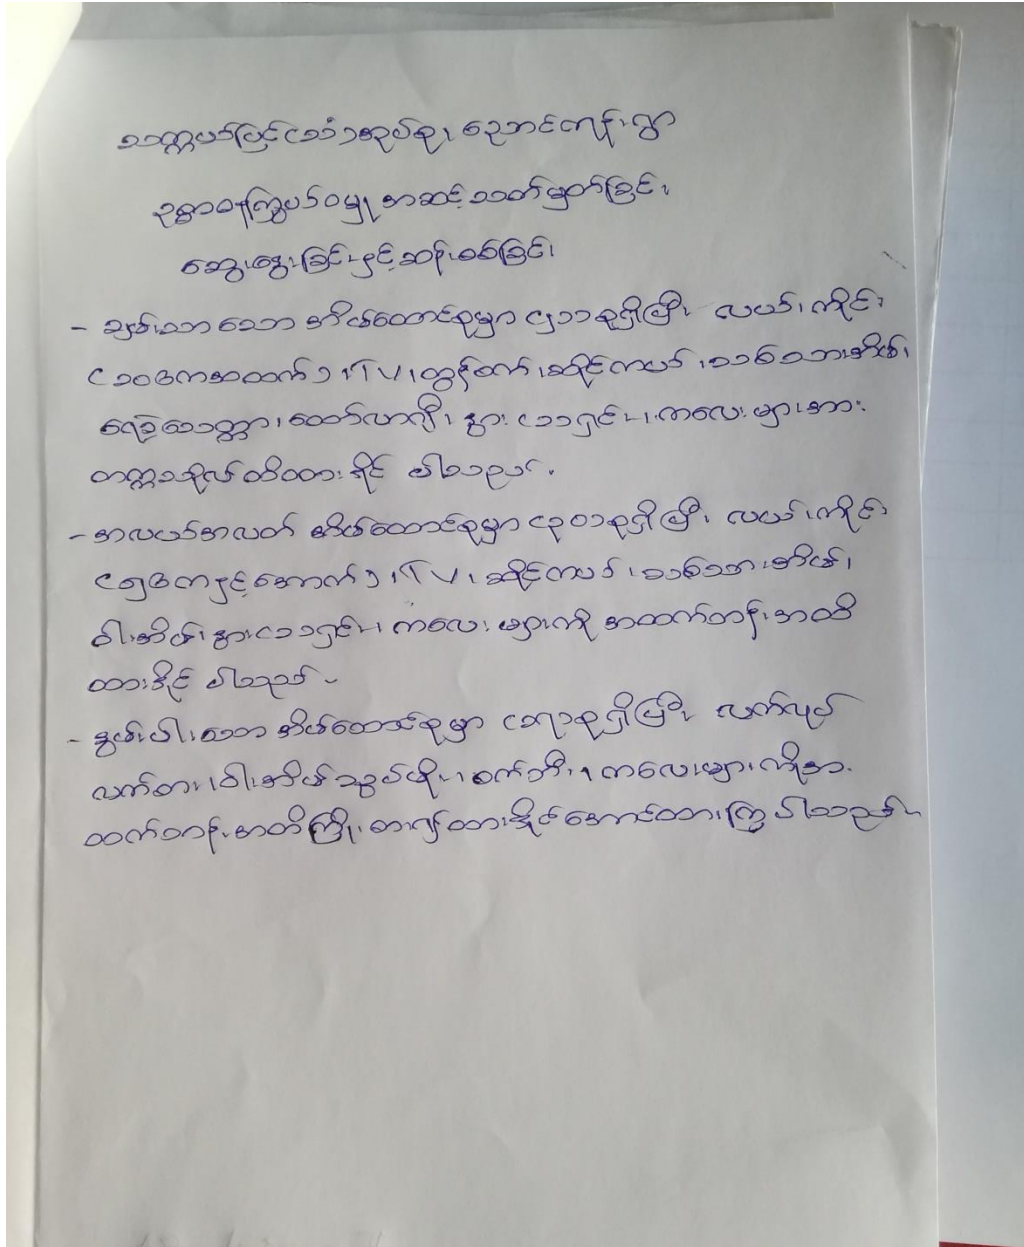 သတ္တပတ်မြင့်(သံ)အုပ်စု၊ ညောင်ကုန်းရွာ
ဥစ္စာဓနကြွယ်ဝမှု အဆင့်သတ်မှတ်ခြင်း
ဆွေးနွေးခြင်းနှင့် ဆန်းစစ်ခြင်း
- ချမ်းသာသော အိမ်ထောင်စုမှာ စုရှိပြီး လယ်၊ ကိုင်း
(၁၀ဧကအထက်)၊ TV၊ ထွန်စက်၊ ဆိုင်ကယ်၊ သစ်သားအိမ်၊
ရေခဲသေတ္တာ၊ ထော်လာဂျီ၊ နွား၊ ကလေးများအား
တက္ကသိုလ်ထိထားနိုင် ပါသည်။
- အလယ်အလတ် အိမ်ထောင်စုမှာ စုရှိပြီး လယ်၊ ကိုင်း
(၅ဧကနှင့်အောက်)၊ TV၊ ဆိုင်ကယ်၊ သစ်သားအိမ်၊
ဝါးအိမ်၊ နွား၊ ကလေးများကို အထက်တန်းအထိ
ထားနိုင် ပါသည်။
- နွမ်းပါးသော အိမ်ထောင်စုမှာ စုရှိပြီး လက်လုပ်
လက်စား၊ ဝါးအိမ်သွပ်မိုး၊ စက်ဘီး၊ ကလေးများကိုအ
ထက်တန်းအထိကြိုးစား၍ထားနိုင်အောင်ထားကြပါသည်။